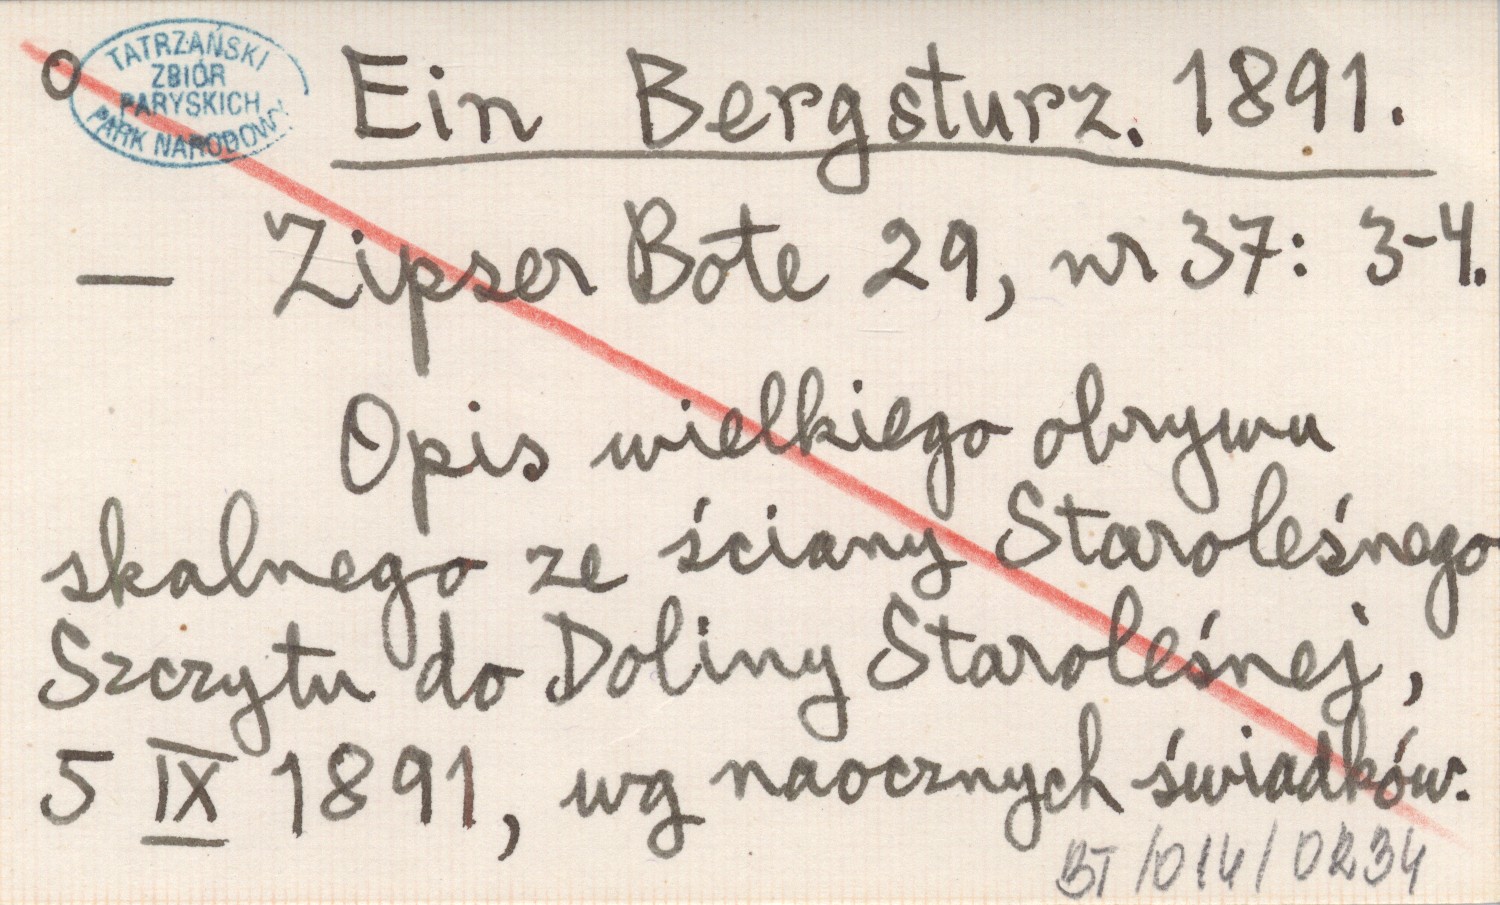 O
TATRZAŃSKI
ZBIÓR
PARYSKICH
PARK NARODOWY
Ein Bergsturz. 1891.
— Zipser Bote 29, nr 37: 3-4.
Opis wielkiego obrywu
skalnego ze ściany Staroleśnego
Szczytu do Doliny Staroleśnej,
5 IX 1891, wg naocznych świadków.
BT/014/0234